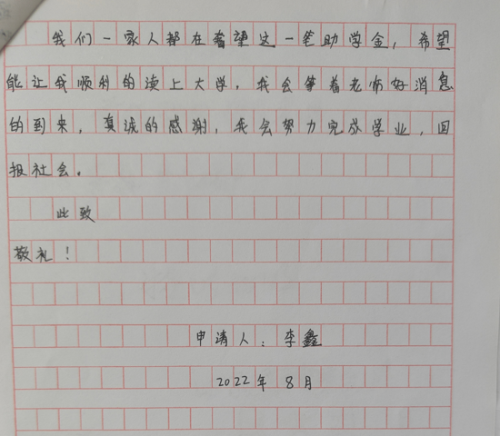 我们一家人都在看望这一笔助学金，希望
能让我顺利的读上大学，我会等着老师好消息
的到来，真诚的感谢，我会努力完成学业，回
报社会。
此致
敬礼！
申请人：李鑫
2022年8月